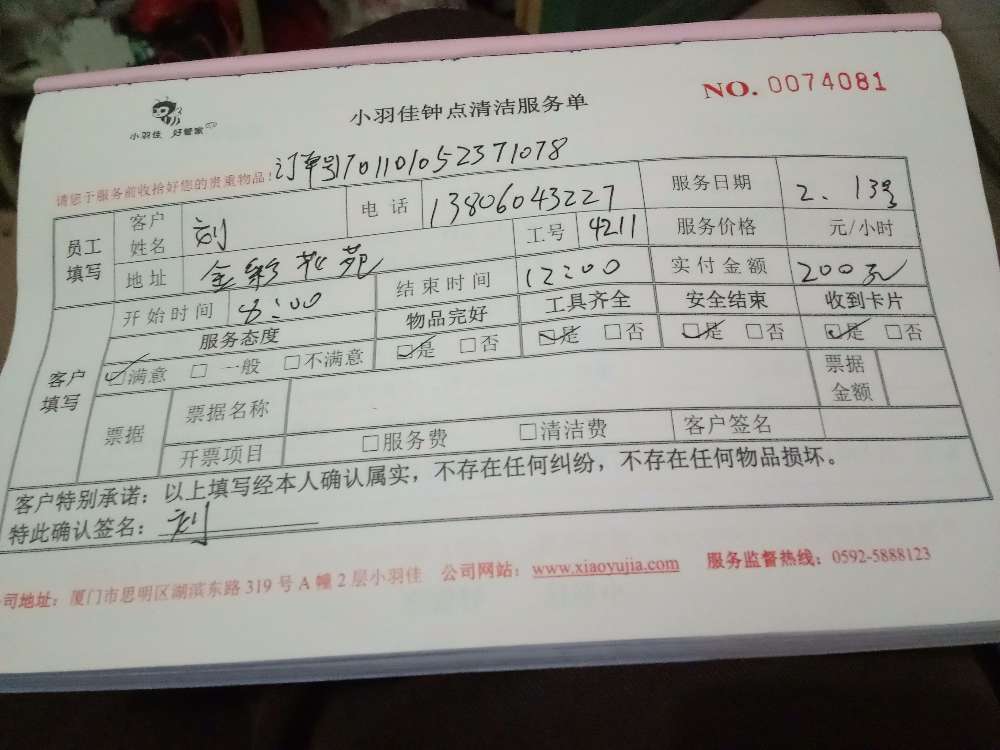 小羽佳 好管家
小羽佳钟点清洁服务单
NO. 0074081
请您于服务前收拾好您的贵重物品！订单号701101052371078
员工填写 客户姓名 刘 电话 13806043227 服务日期 2. 13号
地址 金彩花苑 工号 4211 服务价格 元/小时
开始时间 8:00 结束时间 12:00 实付金额 200元
客户填写 服务态度 物品完好 工具齐全 安全结束 收到卡片
☑满意 □一般 □不满意 ☑是 □否 ☑是 □否 ☑是 □否 ☑是 □否
票据 票据名称 票据金额
开票项目 □服务费 □清洁费 客户签名
客户特别承诺：以上填写经本人确认属实，不存在任何纠纷，不存在任何物品损坏。
特此确认签名：刘
司地址：厦门市思明区湖滨东路319号A幢2层小羽佳 公司网站：www.xiaoyujia.com 服务监督热线：0592-5888123